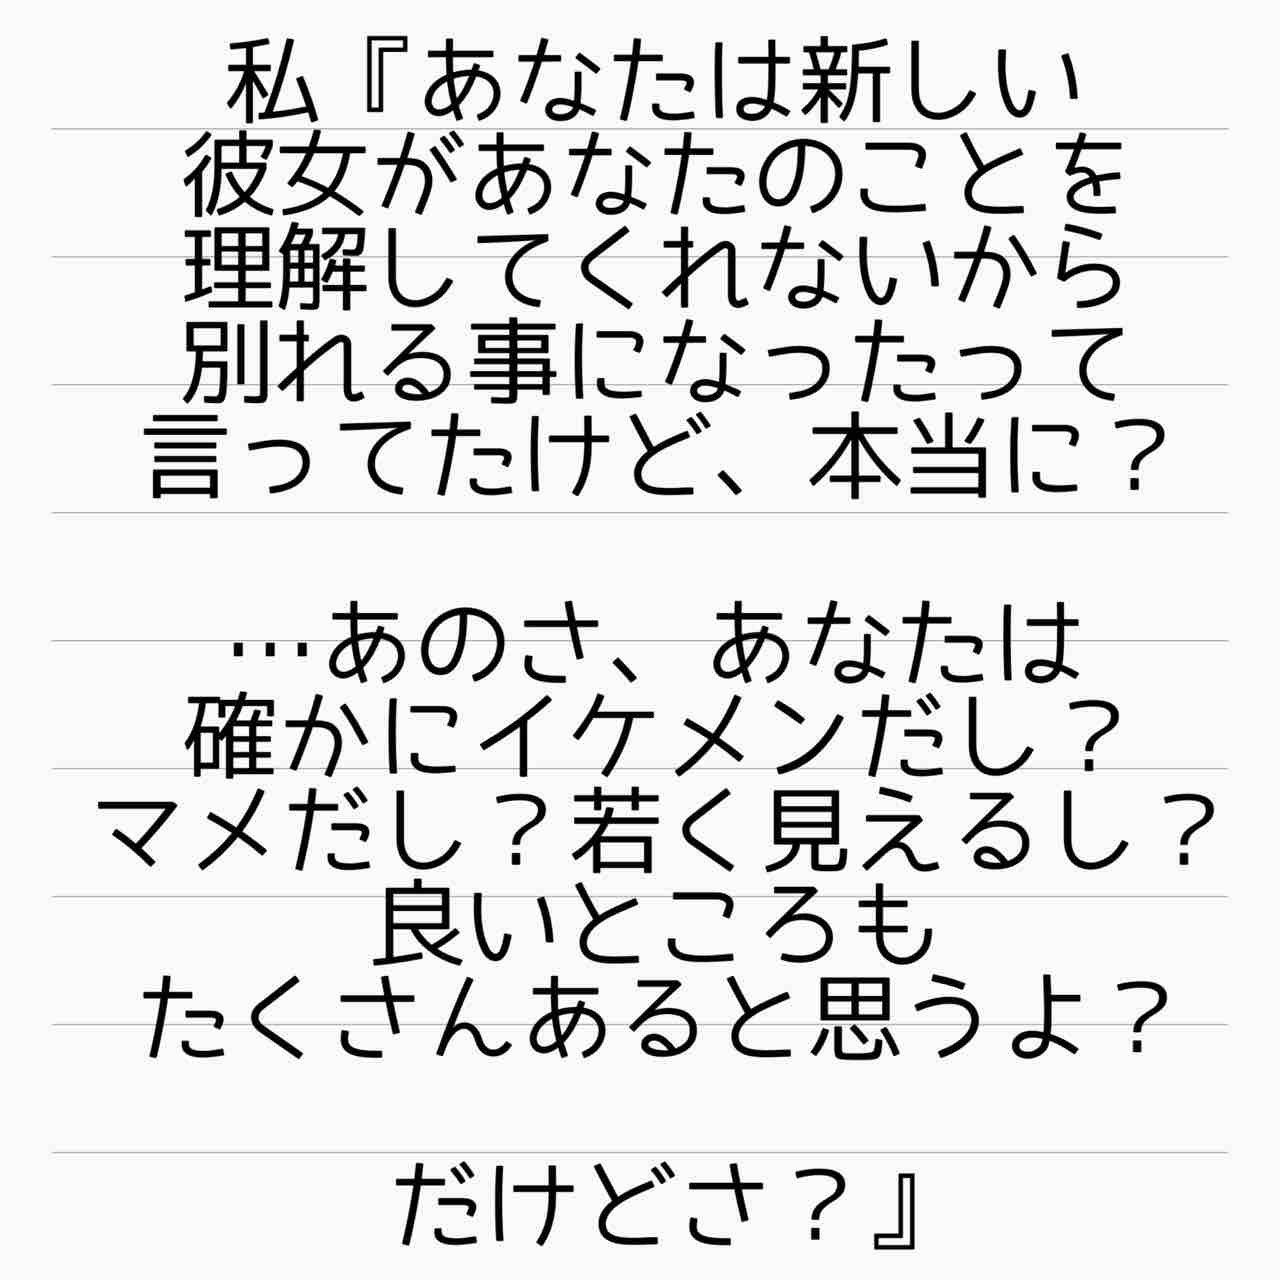 私『あなたは新しい
彼女があなたのことを
理解してくれないから
別れる事になったって
言ってたけど、本当に？
…あのさ、あなたは
確かにイケメンだし？
マメだし？若く見えるし？
良いところも
たくさんあると思うよ？
だけどさ？』